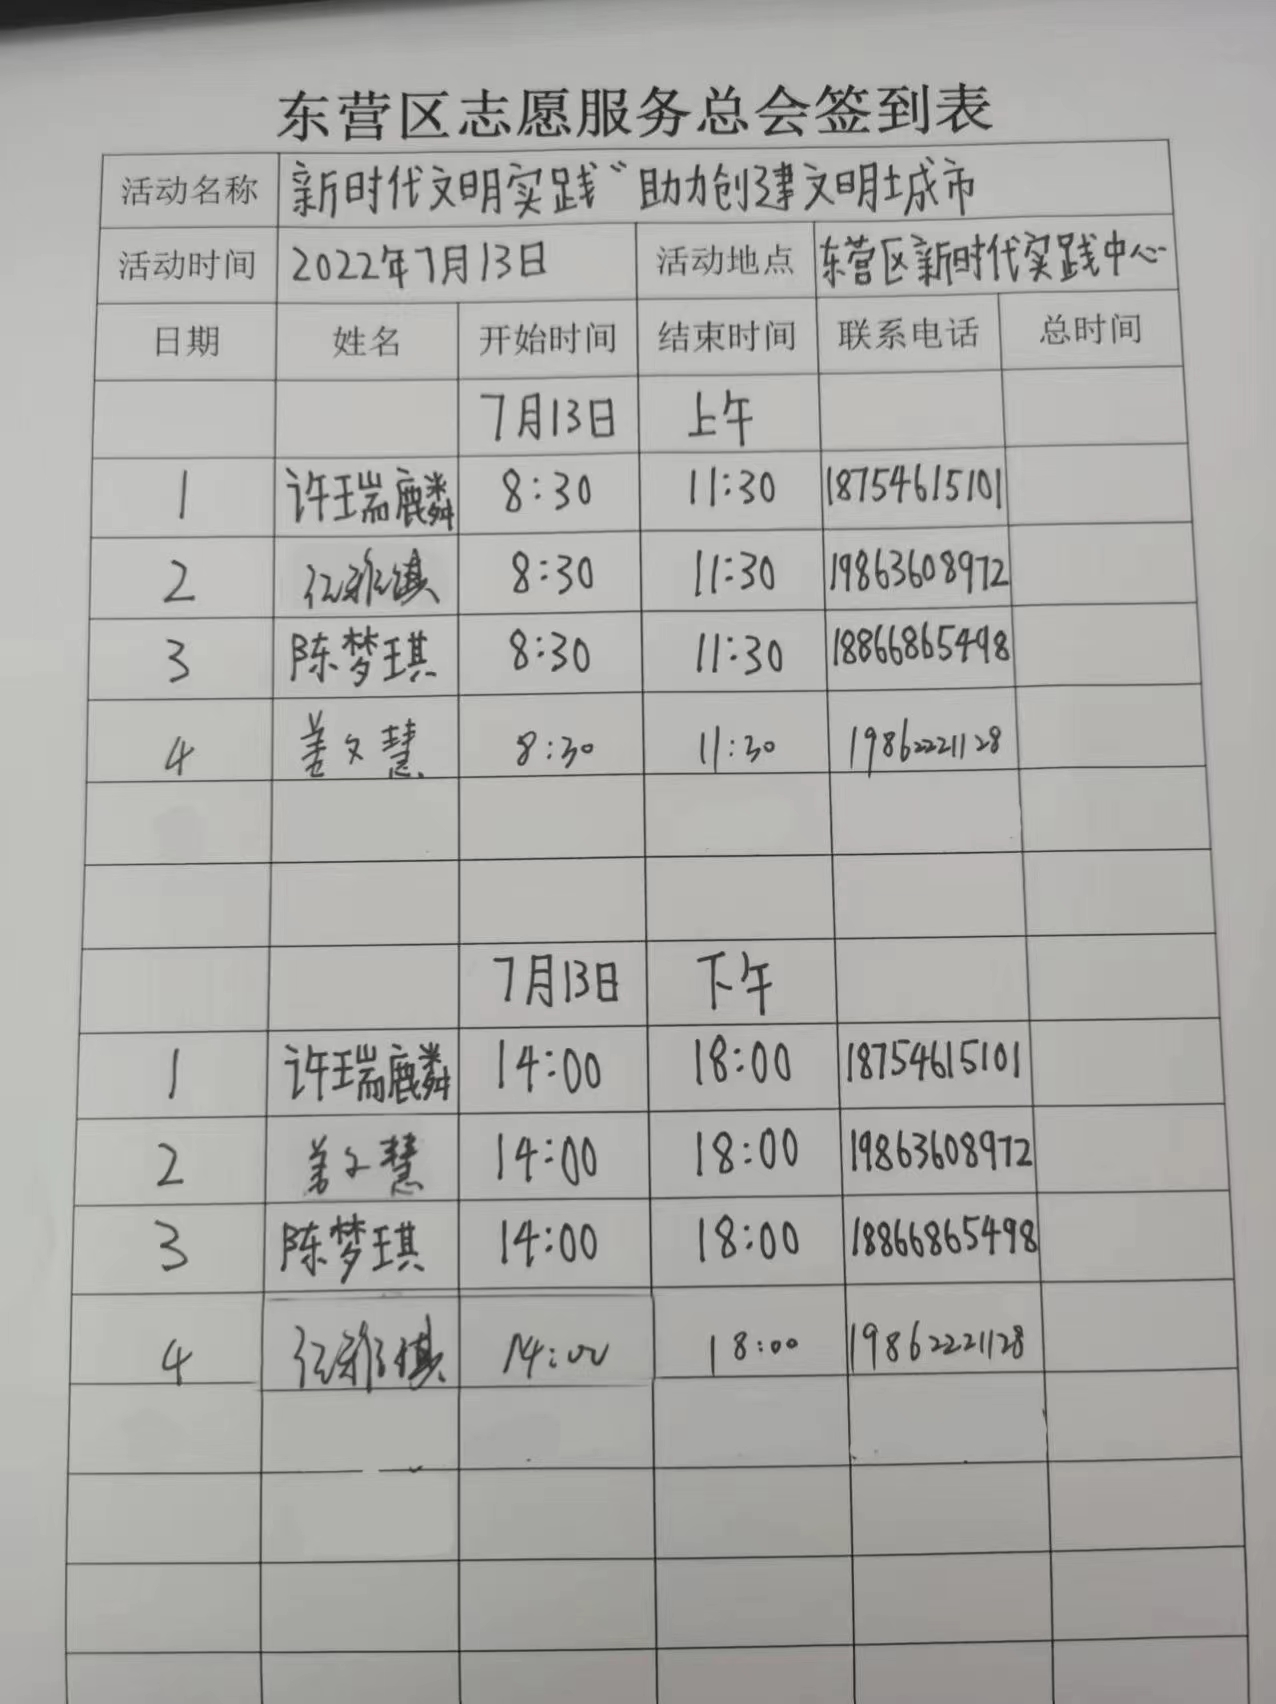 东营区志愿服务总会签到表
活动名称 新时代文明实践“助力创建文明城市
活动时间 2022年7月13日 活动地点 东营区新时代实践中心
日期 姓名 开始时间 结束时间 联系电话 总时间
7月13日 上午
1 许瑞麟 8:30 11:30 18754615101
2 8:30 11:30 19863608972
3 陈梦琪 8:30 11:30 18866865498
4 姜文慧 8:30 11:30 19862221128
7月13日 下午
1 许瑞麟 14:00 18:00 18754615101
2 姜文慧 14:00 18:00 19863608972
3 陈梦琪 14:00 18:00 18866865498
4 14:00 18:00 19862221128